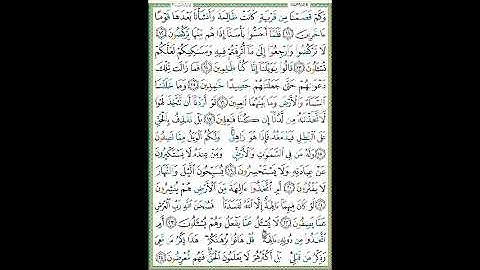 وَكَمْ قَصَمْنَا مِن قَرْيَةٍ كَانَتْ ظَالِمَةً وَأَنشَأْنَا بَعْدَهَا قَوْمًا
ءَاخَرِينَ ١١ فَلَمَّا أَحَسُّوا بَأْسَنَا إِذَا هُم مِّنْهَا يَرْكُضُونَ ١٢
لَا تَرْكُضُوا وَارْجِعُوا إِلَىٰ مَا أُتْرِفْتُمْ فِيهِ وَمَسَاكِنِكُمْ لَعَلَّكُمْ
تُسْأَلُونَ ١٣ قَالُوا يَاوَيْلَنَا إِنَّا كُنَّا ظَالِمِينَ ١٤ فَمَا زَالَت تِّلْكَ
دَعْوَاهُمْ حَتَّىٰ جَعَلْنَاهُمْ حَصِيدًا خَامِدِينَ ١٥ وَمَا خَلَقْنَا
السَّمَاءَ وَالْأَرْضَ وَمَا بَيْنَهُمَا لَاعِبِينَ ١٦ لَوْ أَرَدْنَا أَن نَّتَّخِذَ لَهْوًا
لَّاتَّخَذْنَاهُ مِن لَّدُنَّا إِن كُنَّا فَاعِلِينَ ١٧ بَلْ نَقْذِفُ بِالْحَقِّ
عَلَى الْبَاطِلِ فَيَدْمَغُهُ فَإِذَا هُوَ زَاهِقٌ وَلَكُمُ الْوَيْلُ مِمَّا تَصِفُونَ
١٨ وَلَهُ مَن فِي السَّمَاوَاتِ وَالْأَرْضِ وَمَنْ عِندَهُ لَا يَسْتَكْبِرُونَ
عَنْ عِبَادَتِهِ وَلَا يَسْتَحْسِرُونَ ١٩ يُسَبِّحُونَ اللَّيْلَ وَالنَّهَارَ
لَا يَفْتُرُونَ ٢٠ أَمِ اتَّخَذُوا ءَالِهَةً مِّنَ الْأَرْضِ هُمْ يُنشِرُونَ
٢١ لَوْ كَانَ فِيهِمَا ءَالِهَةٌ إِلَّا اللَّهُ لَفَسَدَتَا فَسُبْحَانَ اللَّهِ رَبِّ الْعَرْشِ
عَمَّا يَصِفُونَ ٢٢ لَا يُسْأَلُ عَمَّا يَفْعَلُ وَهُمْ يُسْأَلُونَ ٢٣ أَمِ
اتَّخَذُوا مِن دُونِهِ ءَالِهَةً قُلْ هَاتُوا بُرْهَانَكُمْ هَٰذَا ذِكْرُ مَن مَّعِيَ
وَذِكْرُ مَن قَبْلِي بَلْ أَكْثَرُهُمْ لَا يَعْلَمُونَ الْحَقَّ فَهُم مُّعْرِضُونَ ٢٤